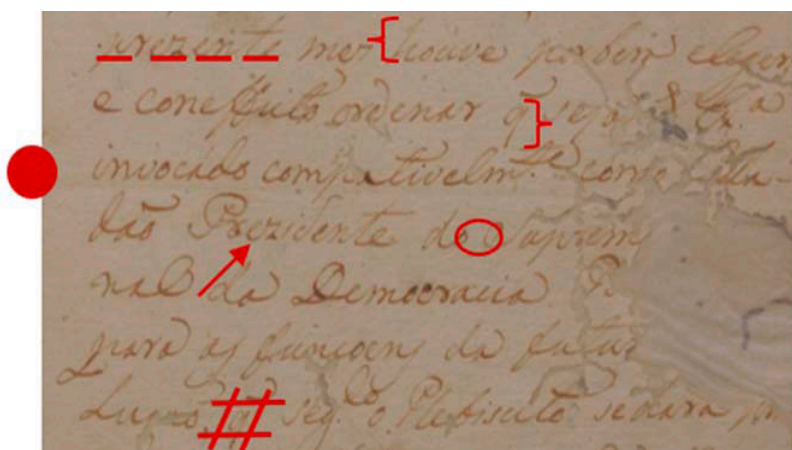 prezente mez houve por bem eleger
e con effeito ordenar q̃ seja S. Exa
invocado competivelm.te como Cida-
dão Prezidente do Suprem
nal da Democracia
para as funcoens da futur
q̃ seg.do o Plebiscito se dara